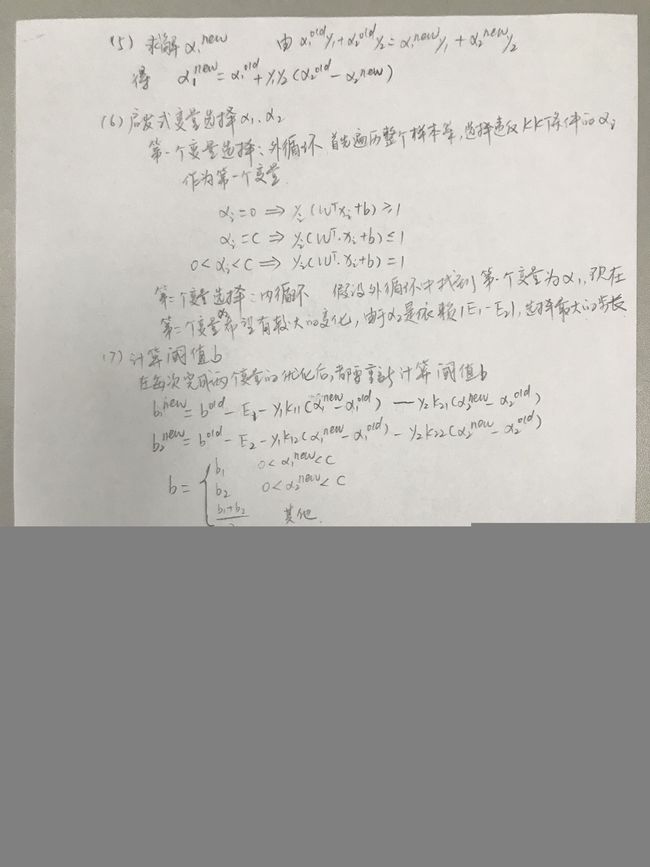 (5) 求解 α₁ⁿᵉʷ 由 α₁ᵒˡᵈy₁+α₂ᵒˡᵈy₂=α₁ⁿᵉʷy₁+α₂ⁿᵉʷy₂
得 α₁ⁿᵉʷ=α₁ᵒˡᵈ+y₁y₂(α₂ᵒˡᵈ-α₂ⁿᵉʷ)
(6) 启发式变量选择α₁、α₂
第一个变量选择:外循环 首先遍历整个样本集,选择违反KKT条件的αᵢ
作为第一个变量.
αᵢ=0 ⇒ yᵢ(Wᵀxᵢ+b)≥1
αᵢ=C ⇒ yᵢ(Wᵀ·xᵢ+b)≤1
0<αᵢ<C ⇒ yᵢ(Wᵀ·xᵢ+b)=1
第二个变量选择:内循环 假设外循环中找到第一个变量为α₁,现在
第二个变量α₂希望有较大的变化,由于α₂是依赖|E₁-E₂|,选择最大的步长
(7) 计算阈值b
在每次完成两个变量的优化后,都要重新计算阈值b
b₁ⁿᵉʷ=bᵒˡᵈ-E₁-y₁k₁₁(α₁ⁿᵉʷ-α₁ᵒˡᵈ)-y₂k₂₁(α₂ⁿᵉʷ-α₂ᵒˡᵈ)
b₂ⁿᵉʷ=bᵒˡᵈ-E₂-y₁k₁₂(α₁ⁿᵉʷ-α₁ᵒˡᵈ)-y₂k₂₂(α₂ⁿᵉʷ-α₂ᵒˡᵈ)
b₁ 0<α₁ⁿᵉʷ<C
b= { b₂ 0<α₂ⁿᵉʷ<C
b₁+b₂ 其他.